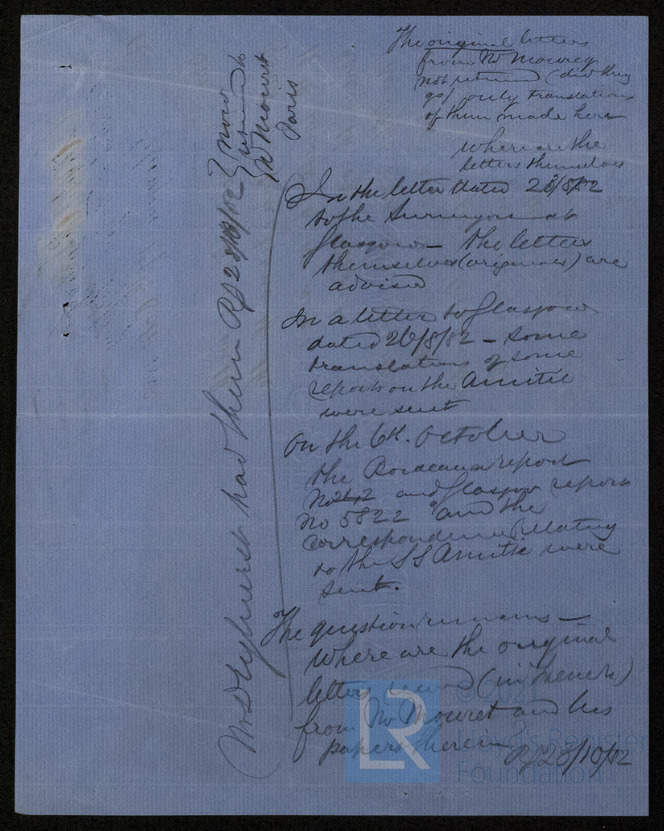 The original letters
from Mr Mouret
not returned (did they
go) only translations
of them made here
where are the
letters themselves
In the letter dated 28/8/82
to the Surveyors at
Glasgow - the letters
themselves (originals) are
advised
In a letter to Glasgow
dated 26/8/82 - some
translations of some
reports on the Amitié
were sent
On the 6th. October
the Bordeaux report
and Glasgow report
No 5822 and the
correspondence relating
to the SS Amitié were
sent.
The question remains -
where are the original
letters (in French)
from Mr Mouret and his
papers therein
28/10/82
had them 28/10/82
now
returned to
Mr Mouret
Paris
LR
Lloyd's Register
Foundation